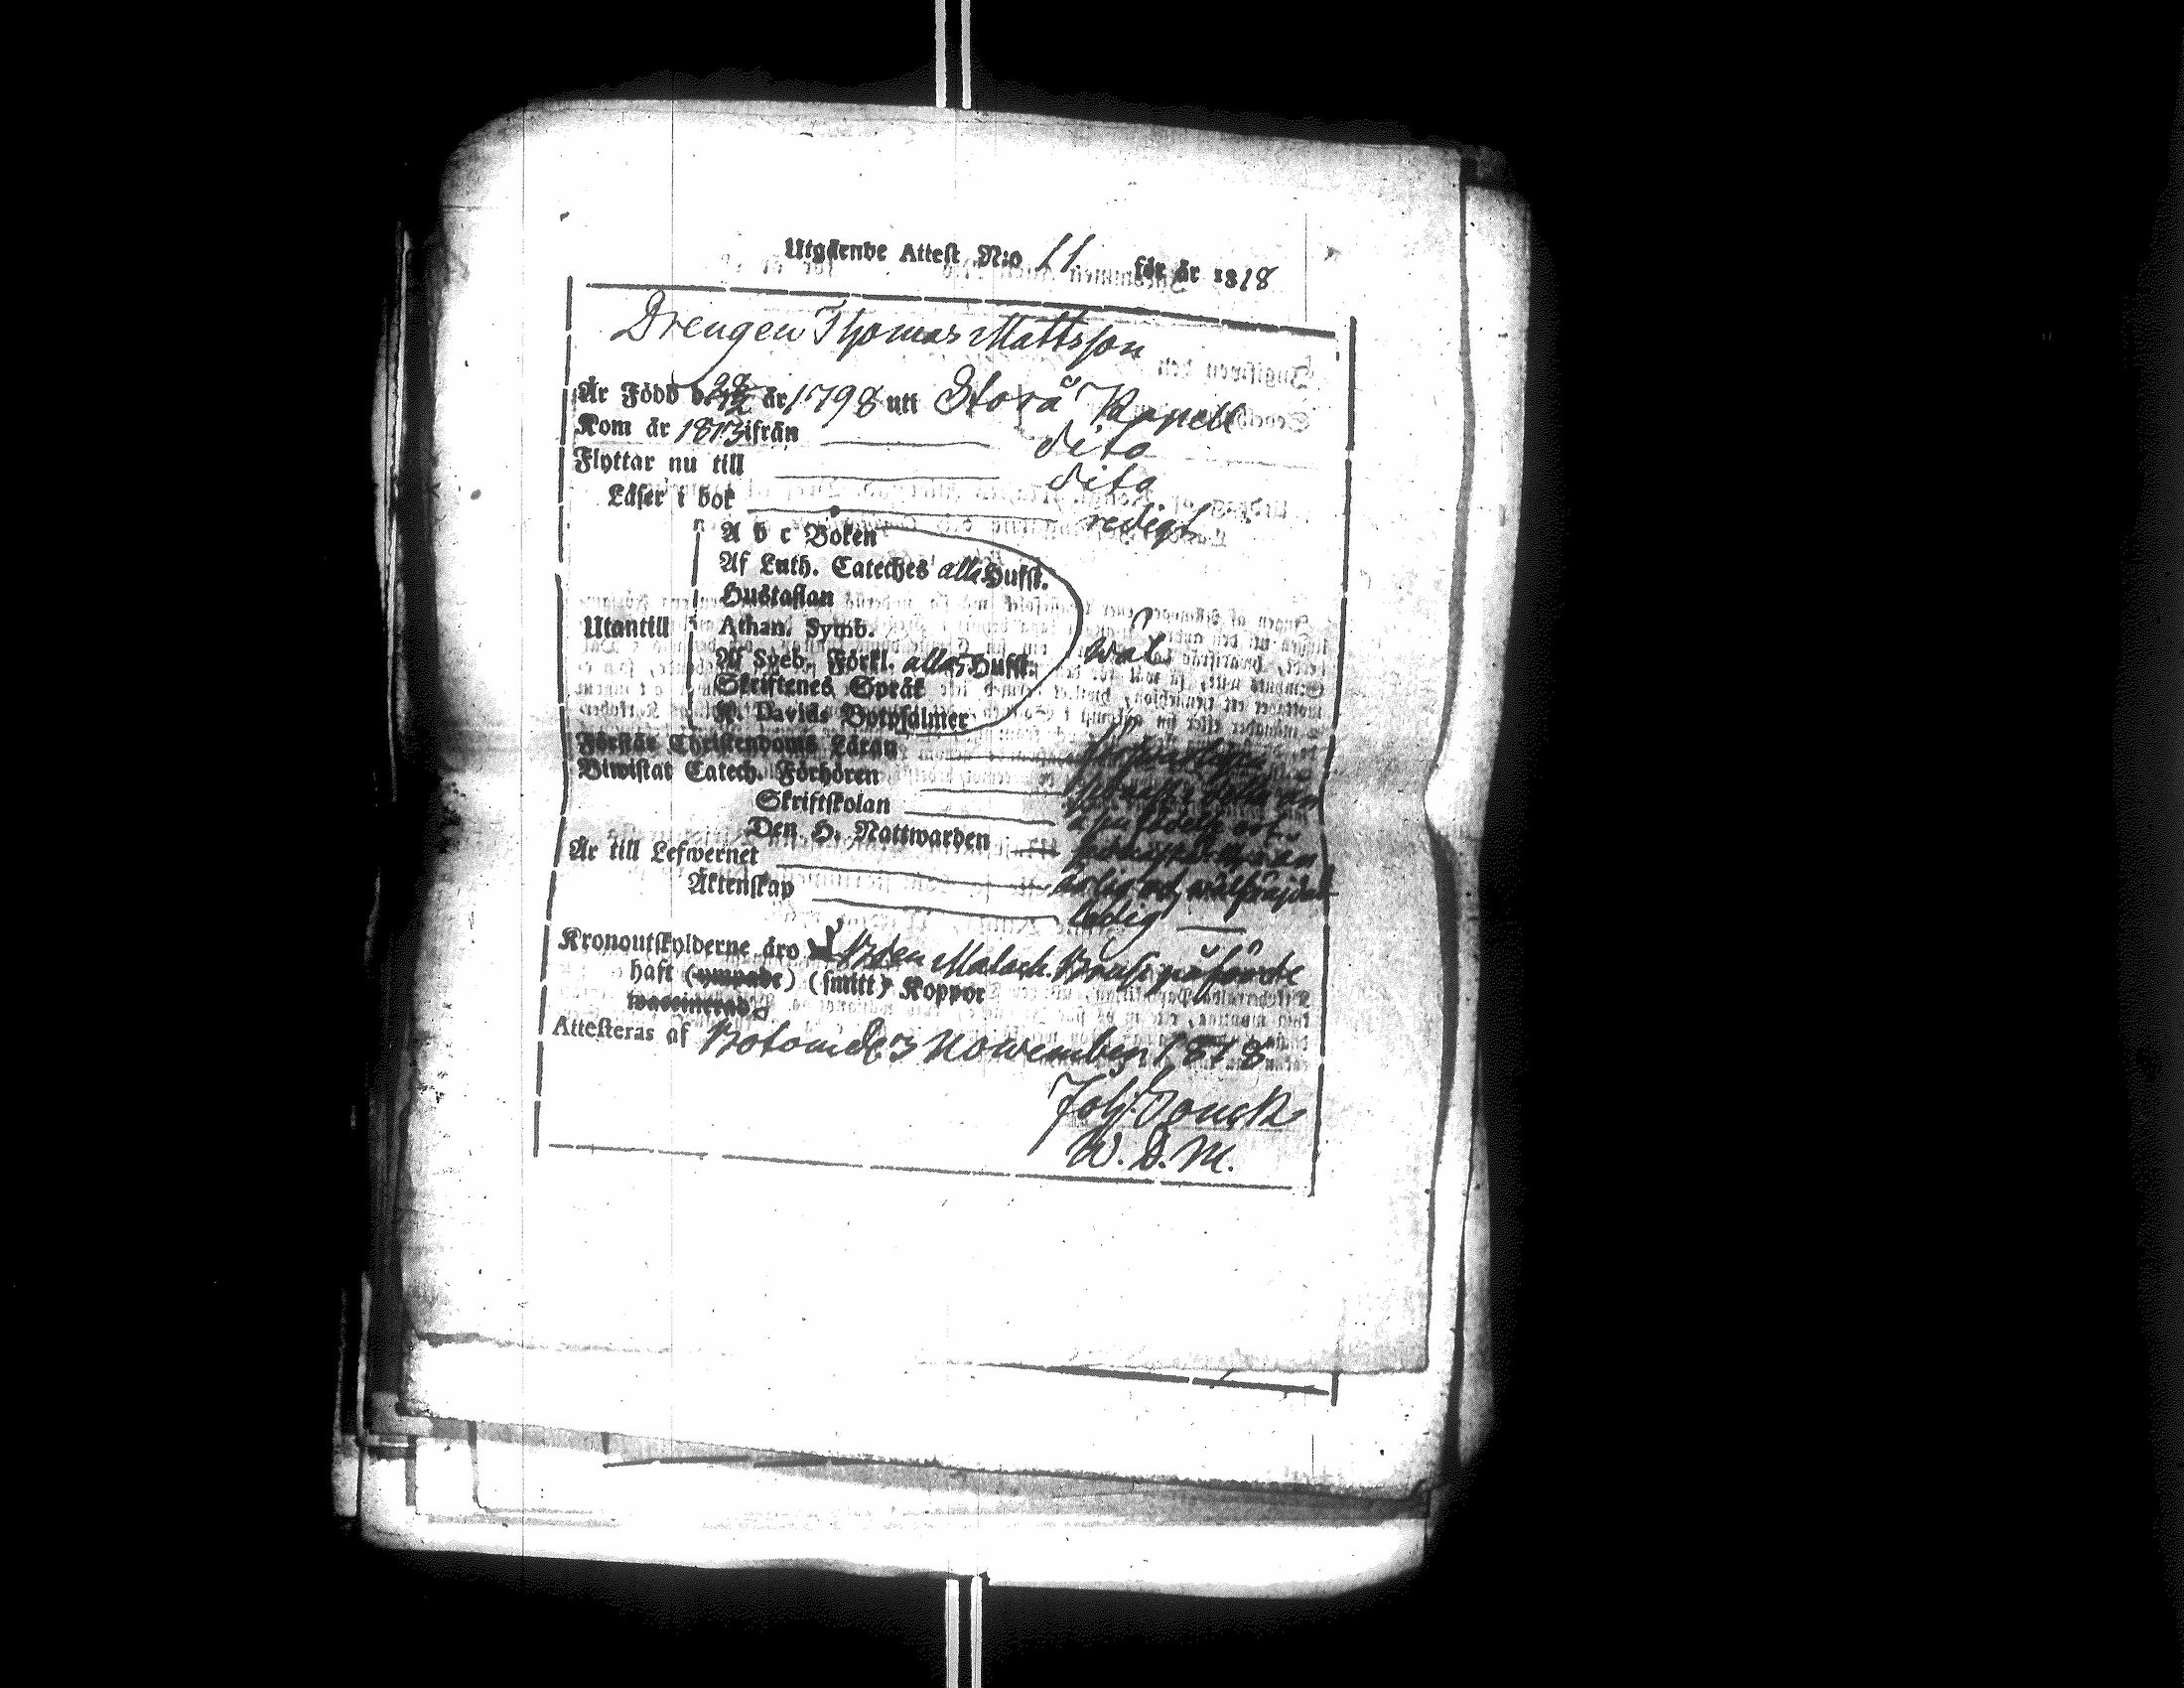 Utgående Attest N:o 11 för år 1818
Drengen Thomas Mattsson
Är Född d. 28/12 år 1798 uti Storå Kapell
Kom år 1813 ifrån dito
Flyttar nu till dito
Läser i bok redigt
A b c Boken
Af Luth. Cateches alla Hufst.
Hustaflan
Utantill Athan. Symb. wäl
Af Sveb. Förkl. alla 5 Hufst.
Skriftenes Språk
K. Davids Botpsalmer
Förstår Christendoms Läran
Biwistat Catech. Förhören
Skriftskolan
Den H. Nattwarden
Är till Lefwernet ärlig och wälfräjdad
Äktenskap ledig
Kronoutskylderne äro påförde
haft (ympade) (smitt) Koppor
waccinerad
Attesteras af Botom d. 3 November 1818
Joh.
W. D. M.